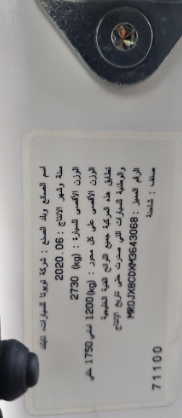 اسم الصانع وبلد الصنع : شركة تويوتا للسيارات، تايلند
سنة وشهر الانتاج : 2020.06
الوزن الاقصى للسيارة : (kg) 2730
الوزن الاقصى على كل محور : (kg) 1200 امامي 1750 خلفي
تطابق هذه المركبة جميع اللوائح الفنية الخليجية
والوطنية للسيارات التي صدرت حتى تاريخ الانتاج
الرقم المميز : MR0JX8CDXM3643068
صنف : شاحنة
71100